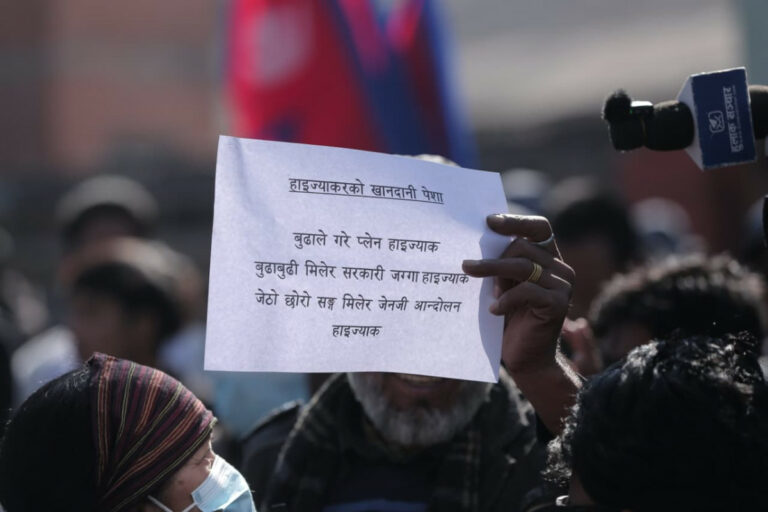 हाइज्याकरको खानदानी पेशा
बुढाले गरे प्लेन हाइज्याक
बुढाबुढी मिलेर सरकारी जग्गा हाइज्याक
जेठो छोरो सङ्ग मिलेर जेनजी आन्दोलन
हाइज्याक
हुलाक सञ्चार